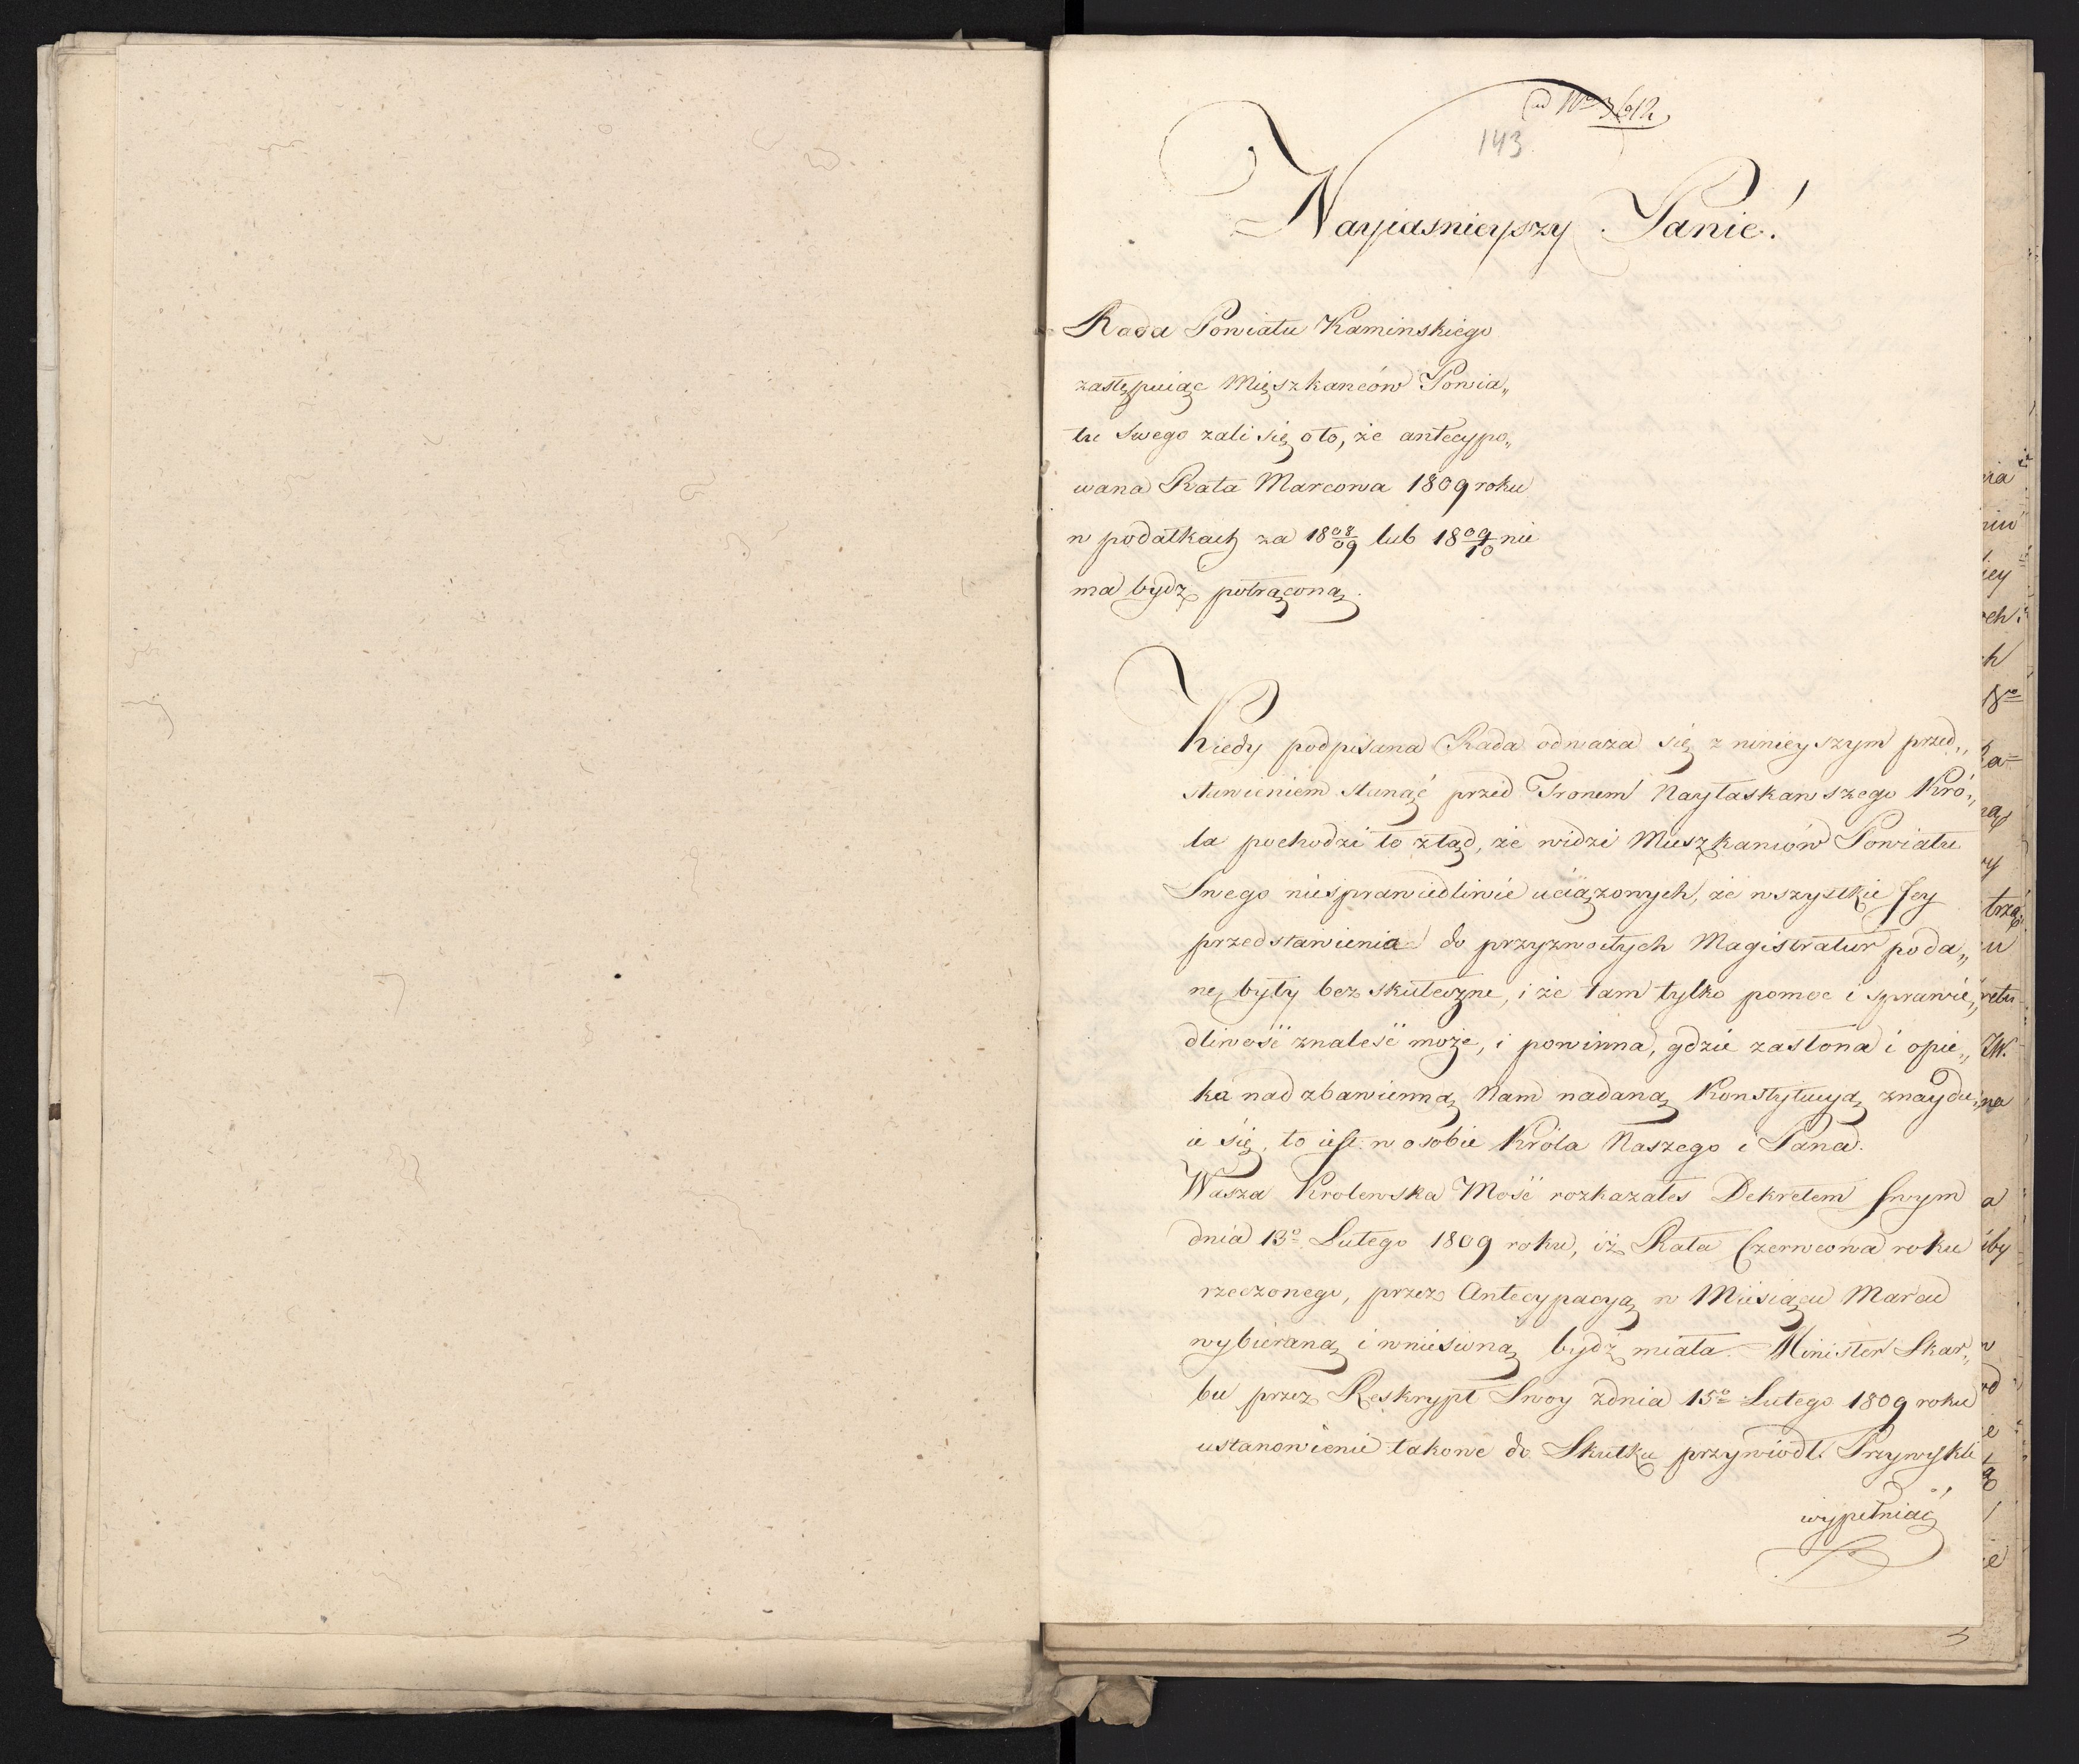 ad No 3612
143
Nayiasnieyszy Panie!
Rada Powiatu Kaminskiego
zastępuiąc Mięszkańców Powia„
tu Swego zali się oto, że antecypo„
wana Rata Marcowa 1809 roku
w podatkach za 1808/09 lub 1809/10 nie
ma bydz potrąconą.
Kiedy podpisana Rada odwaza się z ninieyszym przed„
stawieniem stanąć przed Tronem Nayłaskawszego Kró„
la pochodzi to ztąd, że widzi Mieszkancow Powiatu
Swego niesprawiedliwie uciązonych, że wszystkie Jey
przedstawienia do przyzwoitych Magistratur poda„
ne, były bezskuteczne, i że tam tylko pomoc i sprawie„
dliwość znaleść może, i powinna, gdzie zasłona i opie„
ka nad zbawienną Nam nadaną Konstytucyą znaydu„
ie się, to iest w osobie Króla Naszego i Pana.
Wasza Krolewska Mość rozkazałes Dekretem Swym
dnia 13o Lutego 1809 roku, iż Rata Czerwcowa roku
rzeczonego, przez Antecypacyą w Miesiącu Marcu
wybieraną i wniesioną bydź miała. Minister Skar„
bu przez Reskrypt Swoy zdnia 15o Lutego 1809 roku
ustanowienie takowe do Skutku przywiodł. Przywykli
wypełniać